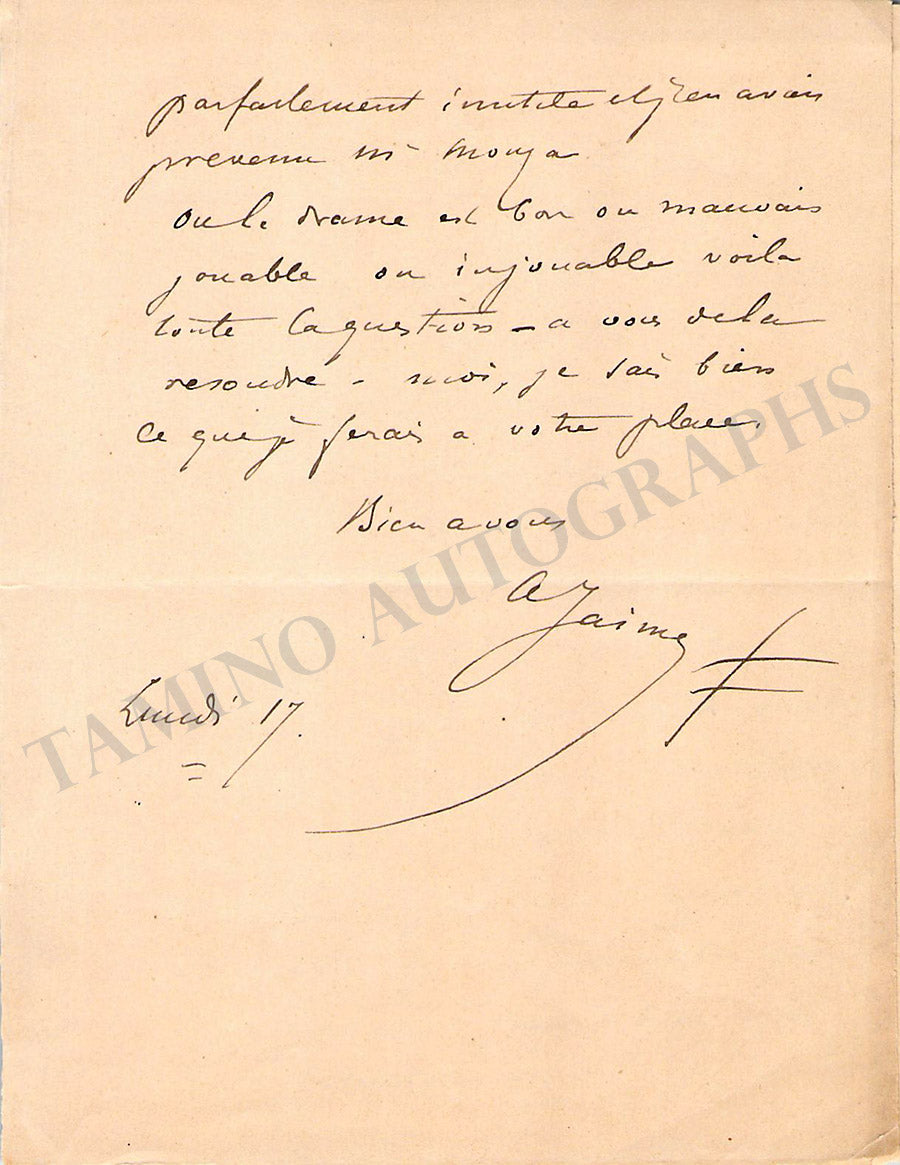 parfaitement inutile et j'en avais
prevenu Mr Mouza
ou le drame est bon ou mauvais
jouable ou injouable voila
toute la question – a vous de la
resoudre – moi, je sais bien
ce que je ferais a votre place,
Bien a vous
A Jaime
Lundi 17.
TAMINO AUTOGRAPHS